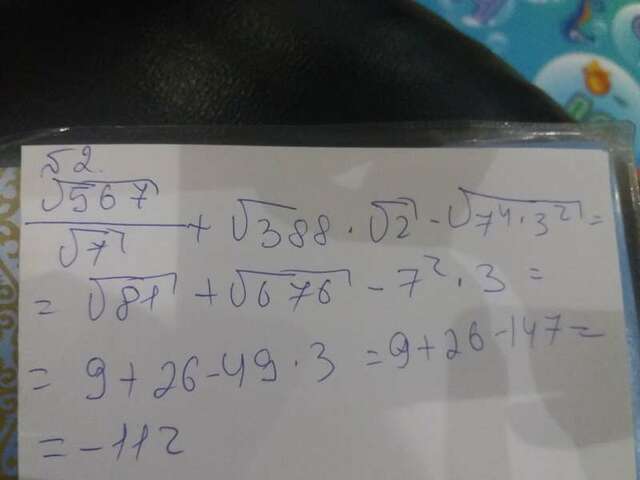 №2.
√567/√7 + √388 · √2 - √7⁴·3² =
= √81 + √676 - 7²·3 =
= 9 + 26 - 49·3 = 9 + 26 - 147 =
= -112